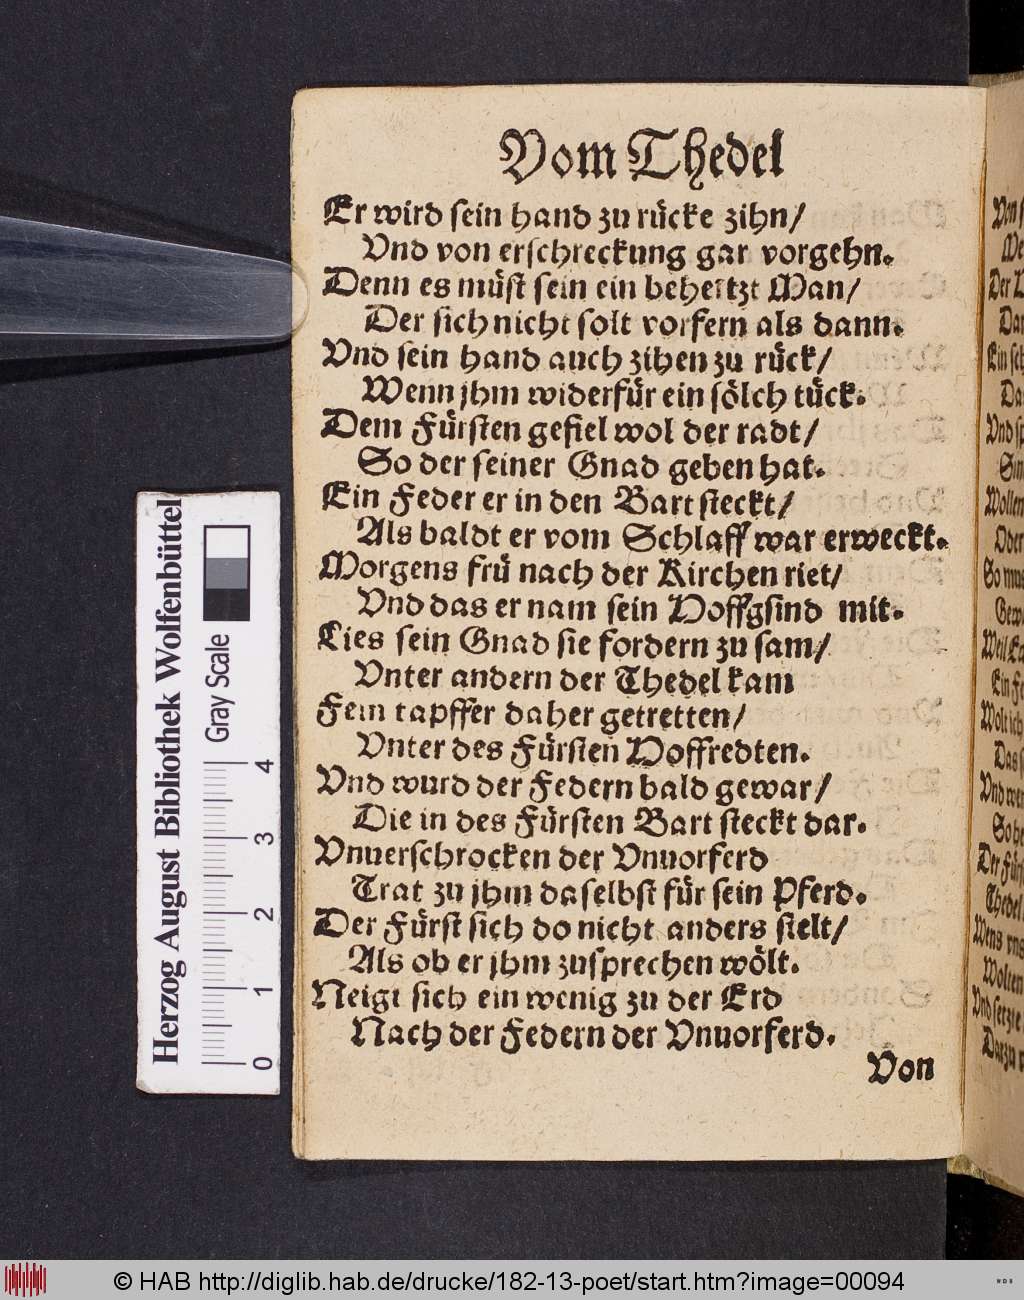 Vom Thedel
Er wird sein hand zu rücke zihn/
Vnd von erschreckung gar vorgehn.
Denn es müst sein ein behertzt Man/
Der sich nicht solt vorfern als dann.
Vnd sein hand auch zihen zu rück/
Wenn jhm widerfür ein sölch tück.
Dem Fürsten gefiel wol der radt/
So der seiner Gnad geben hat.
Ein Feder er in den Bart steckt/
Als baldt er vom Schlaff war erweckt.
Morgens frü nach der Kirchen riet/
Vnd das er nam sein Hoffgsind mit.
Lies sein Gnad sie fordern zu sam/
Vnter andern der Thedel kam
Fein tapffer daher getretten/
Vnter des Fürsten Hoffredten.
Vnd wurd der Federn bald gewar/
Die in des Fürsten Bart steckt dar.
Vnuerschrocken der Vnuorferd
Trat zu jhm daselbst für sein Pferd.
Der Fürst sich do nicht anders stelt/
Als ob er jhm zusprechen wölt.
Neigt sich ein wenig zu der Erd
Nach der Federn der Vnuorferd.
Von
Herzog August Bibliothek Wolfenbüttel
Gray Scale
0 1 2 3 4
Von
Der
Dar
Ein
Da
Vnd
Wollen
Oder
So
Gew
Weil
Ein
Wolt ich
Das
Vnd
So
Der
Thedel
Wens
Wolten
Vnd setzte
Darzu
© HAB http://diglib.hab.de/drucke/182-13-poet/start.htm?image=00094
WDB